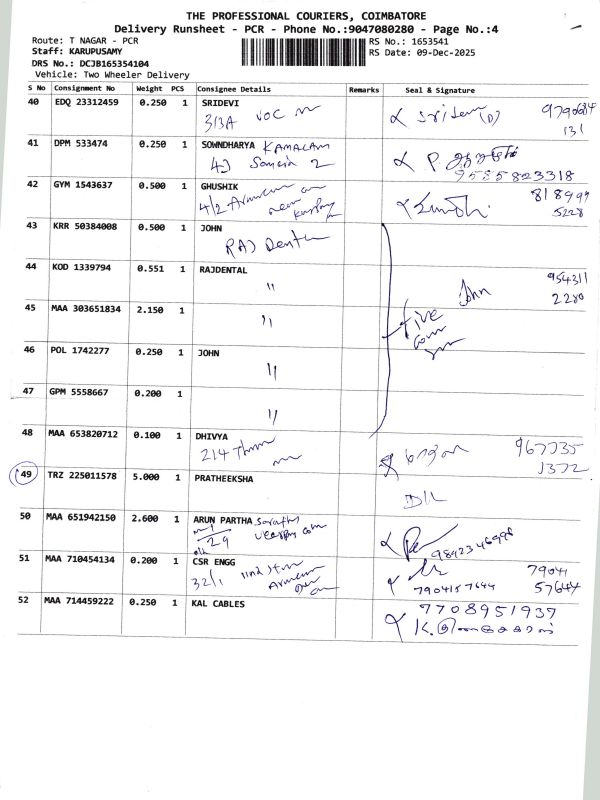 THE PROFESSIONAL COURIERS, COIMBATORE
Delivery Runsheet - PCR - Phone No.:9047080280 - Page No.:4
Route: T NAGAR - PCR
RS No.: 1653541
Staff: KARUPUSAMY
RS Date: 09-Dec-2025
DRS No.: DCJB165354104
Vehicle: Two Wheeler Delivery
S No Consignment No Weight PCS Consignee Details Remarks Seal & Signature
40 EDQ 23312459 0.250 1 SRIDEVI
313A VOC
131
41 DPM 533474 0.250 1 SOWNDHARYA KAMALAM
9585823318
42 GYM 1543637 0.500 1 GHUSHIK 818999
4/2
5228
43 KRR 50384008 0.500 1 JOHN
RAJ Dental
44 KOD 1339794 0.551 1 RAJDENTAL 954311
" John 2280
45 MAA 303651834 2.150 1
" five
46 POL 1742277 0.250 1 JOHN
"
47 GPM 5558667 0.200 1
"
48 MAA 653820712 0.100 1 DHIVYA 967735
214 1372
49 TRZ 225011578 5.000 1 PRATHEEKSHA
D/L
50 MAA 651942150 2.600 1 ARUN PARTHA
29
51 MAA 710454134 0.200 1 CSR ENGG 79041
32/1 7904157644 57644
52 MAA 714459222 0.250 1 KAL CABLES 7708951937